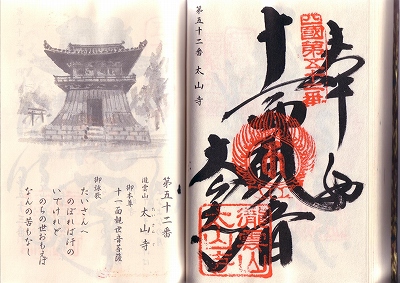 奉納
四國第五十二番
十一面観音
太山寺
瀧雲山
太山寺
第五十二番 太山寺
第五十二番
瀧雲山 太山寺
御本尊
十一面観世音菩薩
御詠歌
たいさんへ
のぼれば汗の
いでけれど
のちの世おもへば
なんの苦もなし